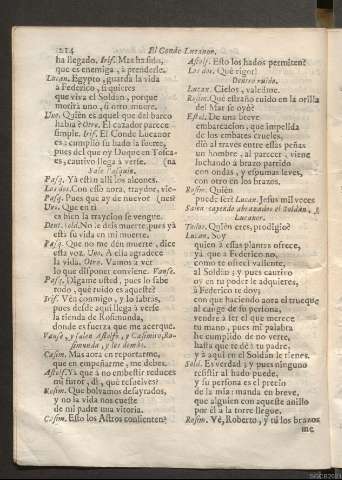 214
El Conde Lucanor.
ha llegado. Irif. Mas ha sido,
que es enemiga, à prenderle.
Lucan. Egypto, guarda la vida
à Federico, si quieres
que viva el Soldàn, porque
morirà uno, si otro muere.
Uno. Quièn es aquel que del barco
habla? Otro. El cazador parece
simple. Irif. El Conde Lucanor
es: cumpliò su hado la suerte,
pues del que oy Duque en Tosca-
es, cautivo llega à verse. (na
Sale Pasquin.
Pasq. Yà estàn alli los alcones.
Los dos. Con esso aora, traydor, vie-
Pasq. Pues que ay de nuevo? (nes?
Uno. Que en ti
es bien la traycion se vengue.
Dent. sold. No le deis muerte, pues yà
està su vida en mi muerte.
Pasq. Que no me dèn muerte, dice
esta voz. Uno. A ella agradece
la vida. Otro. Vamos à ver
lo que disponer conviene. Vanse.
Pasq. Digame usted, pues lo sabe
todo, què ruido es aqueste?
Irif. Vèn conmigo, y lo sabràs,
pues desde aqui llega à verse
la tienda de Rosimunda,
donde es fuerza que me acerque.
Vanse, y salen Astolfo, y Casimiro, Ro-
simunda, y los demàs.
Casim. Mas aora en reportarme,
que en empeñarme, me debes.
Astolf. Yà que à no embestir reduces
mi furor, dì, què resuelves?
Rosim. Que bolvamos desayrados,
y no la vida nos cueste
de mi padre una vitoria.
Casim. Esto los Astros consienten?
Astolf. Esto los hados permiten?
Los dos. Què rigor!
Dentro ruido.
Lucan. Cielos, valedme.
Rosim. Què estraño ruido en la orilla
del Mar se oyò?
Astol. De una breve
embarcacion, que impelida
de los embates crueles,
diò al travès entre essas peñas
un hombre, al parecer, viene
luchando à brazo partido
con ondas, y espumas leves,
con otro en los brazos.
Rosim. Quièn
puede ser? Lucan. Jesus mil veces
Salen cayendo abrazados el Soldàn, y
Lucanor.
Todos. Quièn eres, prodigio?
Lucan. Soy
quien à essas plantas ofrece,
yà que à Federico no,
como te ofreci valiente,
al Soldàn; y pues cautivo
oy en tu poder le adquieres,
à Federico te doy;
con que haciendo aora el trueque
al cange de su persona,
vendrè à ser el que merece
tu mano, pues mi palabra
he cumplido de no verte,
hasta que te dè à tu padre,
y à aqui en el Soldàn le tienes.
Sold. Es verdad; y pues ninguno
resistir al hado puede,
y su persona es el precio
de la mia: manda en breve,
que alguien con aqueste anillo
por èl à la torre llegue.
Rosim. Vè, Roberto, y tù los brazos
me